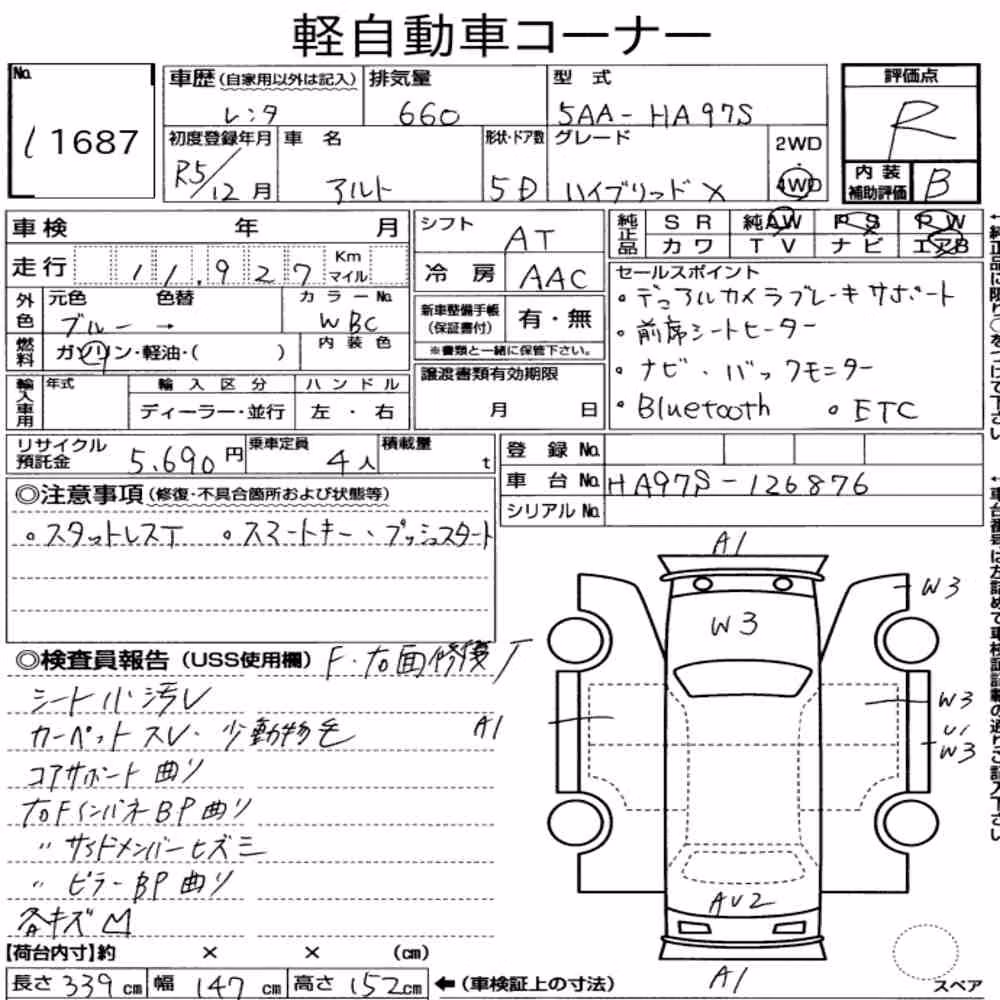 軽自動車コーナー
No. 11687
車歴(自家用以外は記入) レンタ
排気量 660
型式 5AA-HA97S
評価点 R
初度登録年月 R5/12月
車名 アルト
形状・ドア数 5D
グレード ハイブリッドX
2WD
4WD
内装補助評価 B
車検 年 月
走行 11,927 Km マイル
外色 元色 ブルー → 色替 カラーNo. WBC
燃料 ガソリン・軽油・( ) 内装色
輸入車用 年式 輸入区分 ディーラー・並行 ハンドル 左・右
シフト AT
冷房 AAC
新車整備手帳(保証書付) 有・無
※書類と一緒に保管下さい。
譲渡書類有効期限 月 日
純正品 SR 純AW PS PW
カワ TV ナビ エアB
セールスポイント
・デュアルカメラブレーキサポート
・前席シートヒーター
・ナビ・バックモニター
・Bluetooth ・ETC
リサイクル預託金 5,690円
乗車定員 4人
積載量 t
登録No.
車台No. HA97S-126876
シリアルNo.
◎注意事項(修復・不具合箇所および状態等)
・スタットレスT ・スマートキー、プッシュスタート
◎検査員報告(USS使用欄) F・右面修復T
シート小汚レ
カーペットスレ・少動物毛
コアサポート曲り
右FインパネBP曲り
〃サイドメンバーヒズミ
〃ピラーBP曲り
各キズ凹
【荷台内寸】約 × × (cm)
長さ339cm 幅147cm 高さ152cm
←(車検証上の寸法)
A1
W3
W3
A1
W3
U1
W3
AU2
A1
スペア
←純正品に限り○をつけて下さい
←車台番号は左詰めで車検証記載の通りご記入下さい